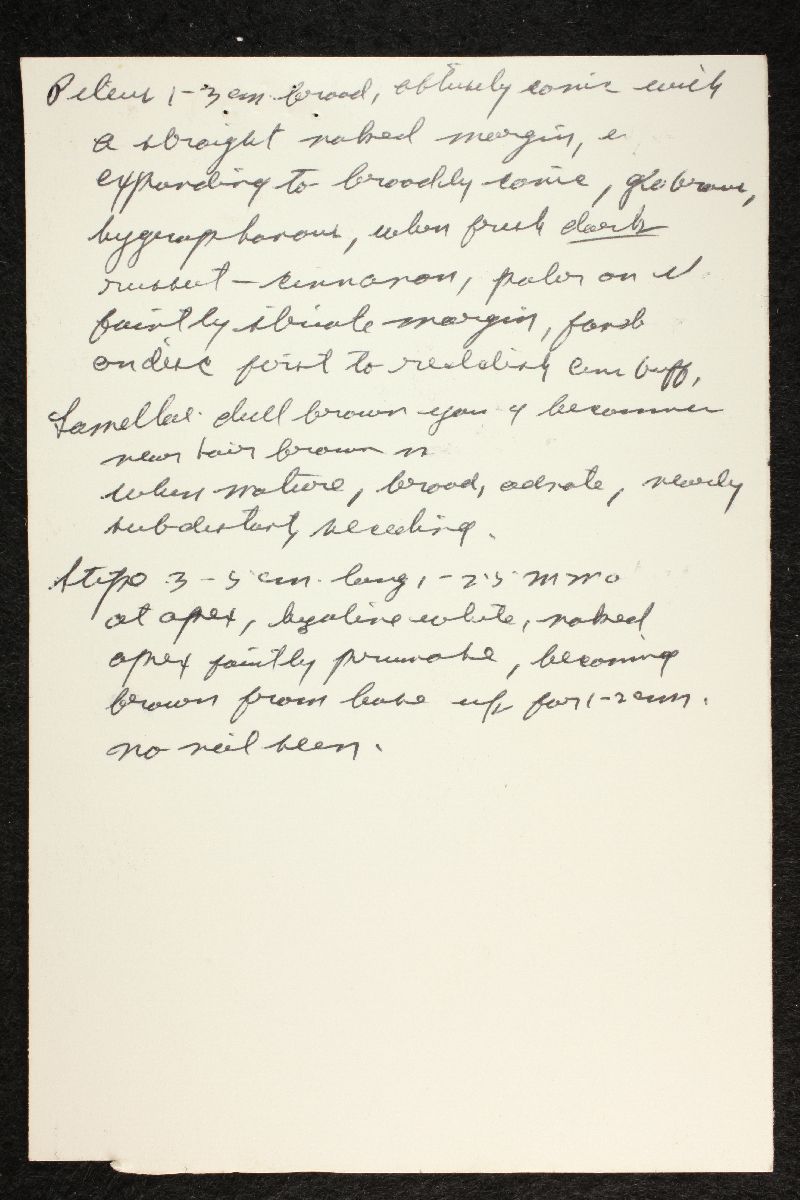 Pileus 1-3 cm broad, obtusely conic with
a straight naked margin,
expanding to broadly conic, glabrous,
hygrophanous, when fresh dark
russet-cinnamon, paler on
faintly striate margin,
on disc first to reddish cinn buff,
Lamellae dull brown young & becoming
near hair brown
when mature, broad, adnate, nearly
subdistant, seceding.
Stipe 3-5 cm long, 1-2.5 mm
at apex, hyaline white, naked
apex faintly pruinose, becoming
brown from base up for 1-2 cm.
no veil seen.